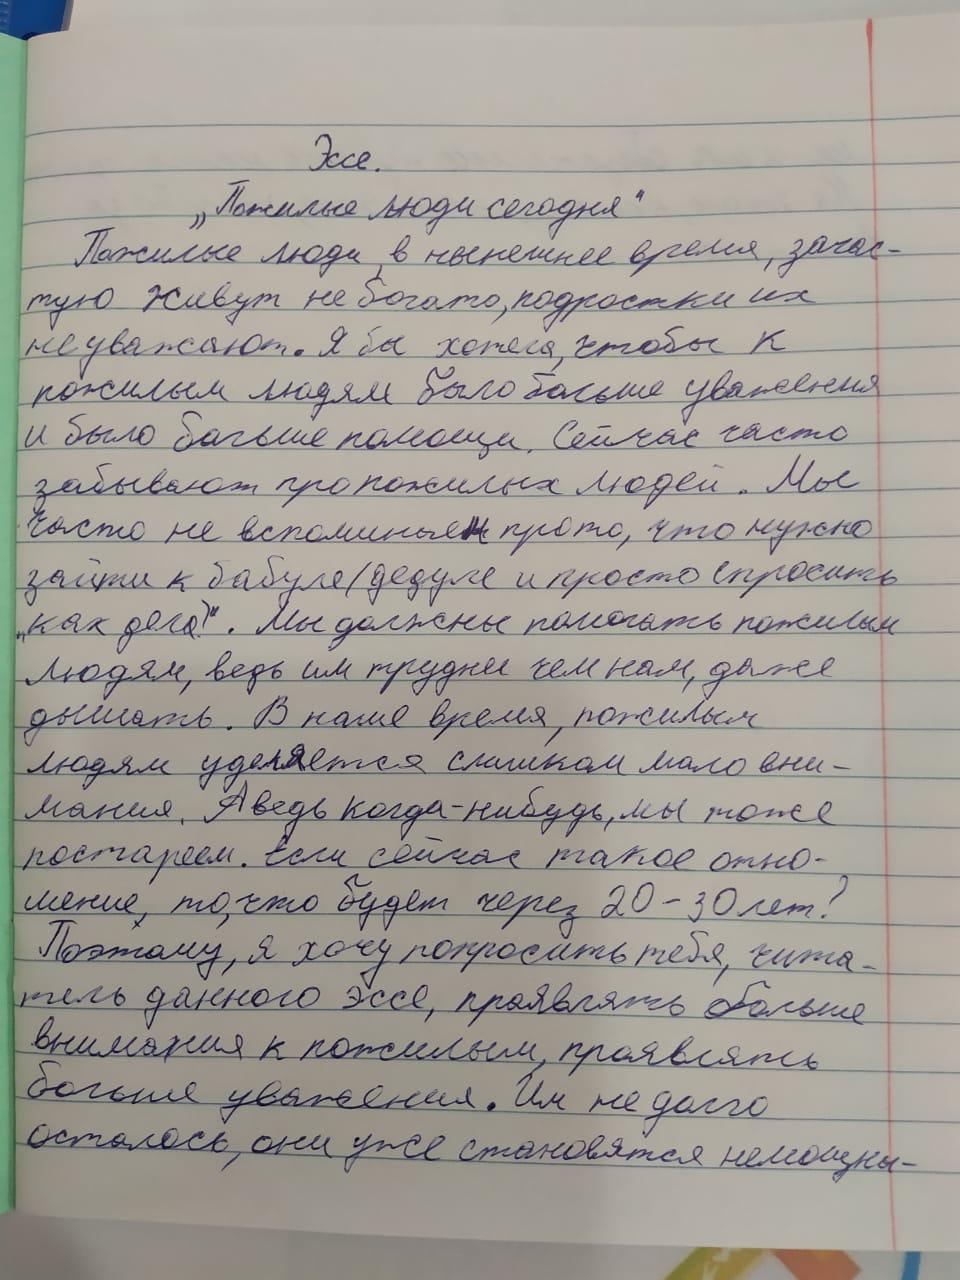 Эссе.
„Пожилые люди сегодня"
Пожилые люди, в нынешнее время, зачас-
тую живут не богато, подростки их
не уважают. Я бы хотела, чтобы к
пожилым людям было больше уважения
и было больше помощи. Сейчас часто
забывают про пожилых людей. Мы
часто не вспоминаем про то, что нужно
зайти к бабуле/дедуле и просто спросить
„как дела?". Мы должны помогать пожилым
людям, ведь им трудне чем нам, даже
дышать. В наше время, пожилым
людям уделяется слишком мало вни-
мания. А ведь когда-нибудь, мы тоже
постареем. Если сейчас такое отно-
шение, то, что будет через 20-30 лет?
Поэтому, я хочу попросить тебя, чита-
тель данного эссе, проявлять больше
внимания к пожилым, проявлять
больше уважения. Им не долго
осталось, они уже становятся немощны-